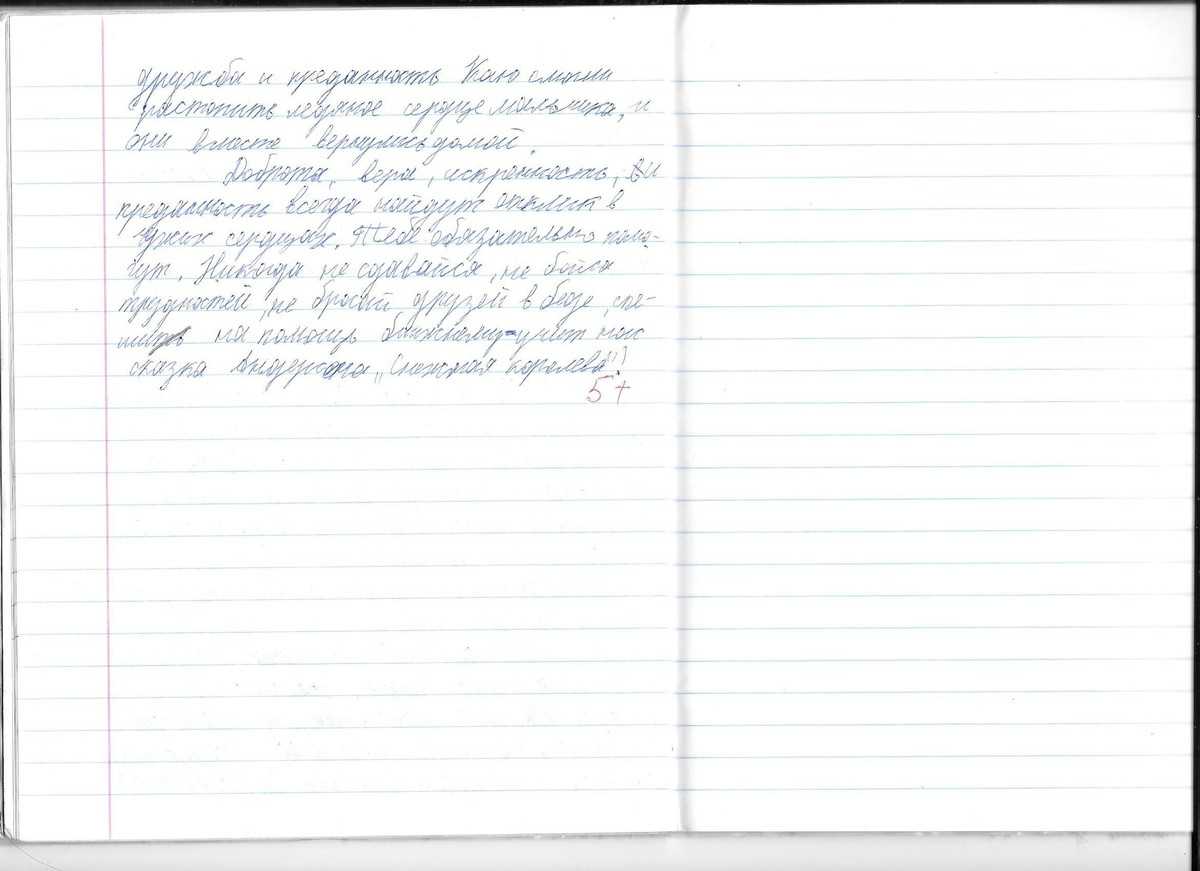 дружба и преданность Каю смогли
растопить ледяное сердце мальчика, и
они вместе вернулись домой.
Доброта, вера, искренность, и
преданность всегда найдут отклик в
чужих сердцах. Тебе обязательно помо-
гут. Никогда не сдавайся, не бойся
трудностей, не бросай друзей в беде, спе-
шить на помощь ближнему-учит нас
сказка Андерсона „Снежная королева"!
5+